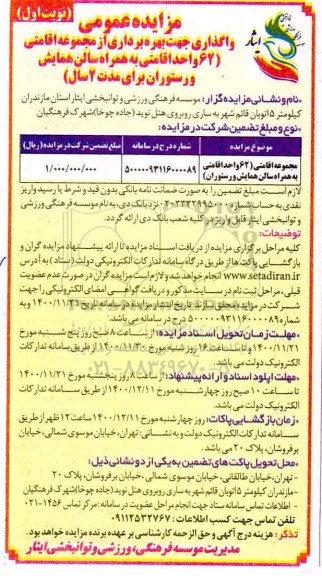 (نوبت اول)
مزایده عمومی
واگذاری جهت بهره برداری از مجموعه اقامتی
(۶۲ واحد اقامتی به همراه سالن همایش
و رستوران برای مدت ۲ سال)
ایثار
نام و نشانی مزایده گزار: موسسه فرهنگی ورزشی و توانبخشی ایثار استان مازندران
کیلومتر ۵ اتوبان قائم شهر به ساری روبروی هتل نوید (جاده جوخا) شهرک فرهنگیان
نوع و مبلغ تضمین شرکت در مزایده:
موضوع مزایده شماره درج در سامانه مبلغ تضمین شرکت در مزایده (ریال)
مجموعه اقامتی (۶۲ واحد اقامتی به همراه سالن همایش و رستوران) ۵۰۰۰۰۰۹۳۱۱۶۰۰۰۰۸۹ ۱/۰۰۰/۰۰۰/۰۰۰
لازم است مبلغ تضمین را به صورت ضمانت نامه بانکی بدون قید و شرط یا رسید واریز
نقدی به حساب شماره نزد بانک دی، به نام موسسه فرهنگی ورزشی
و توانبخشی ایثار قابل واریز در کلیه شعب بانک دی ارائه گردد.
توضیحات:
کلیه مراحل برگزاری مزایده از دریافت اسناد مزایده تا ارائه پیشنهاد مزایده گران و
بازگشایی پاکت ها از طریق درگاه سامانه تدارکات الکترونیکی دولت (ستاد) به آدرس
www.setadiran.ir انجام خواهد شد و لازم است مزایده گران در صورت عدم عضویت
قبلی، مراحل ثبت نام در سایت مذکور و دریافت گواهی امضای الکترونیکی را جهت
شرکت در مزایده محقق سازند. تاریخ انتشار مزایده در سامانه تاریخ ۱۴۰۰/۱۱/۲۱ به
شماره ۵۰۰۰۰۰۹۳۱۱۶۰۰۰۰۸۹ درج در سامانه می باشد.
مهلت زمان تحویل اسناد مزایده: از ساعت ۸ صبح روز پنج شنبه مورخ
۱۴۰۰/۱۱/۲۱ و تا ساعت ۱۶ روز شنبه مورخ ۱۴۰۰/۱۱/۳۰ از طریق سامانه تدارکات
الکترونیک دولت می باشد.
مهلت آپلود اسناد و ارائه پیشنهاد: از ساعت ۸ روز پنجشنبه مورخ ۱۴۰۰/۱۱/۲۱
تا ساعت ۱۰ صبح روز چهارشنبه مورخ ۱۴۰۰/۱۲/۱۱ از طریق سامانه تدارکات
الکترونیک دولت می باشد.
زمان بازگشایی پاکات: روز چهارشنبه مورخ ۱۴۰۰/۱۲/۱۱ ساعت ۱۲ ظهر از طریق
سامانه تدارکات الکترونیک دولت و به نشانی: تهران، خیابان موسوی شمالی، خیابان
برفروشان، پلاک ۲۰ می باشد.
محل تحویل پاکت های تضمین به یکی از دو نشانی ذیل:
- تهران، خیابان طالقانی، خیابان موسوی شمالی، خیابان برفروشان، پلاک ۲۰
- مازندران کیلومتر ۵ اتوبان قائم شهر به ساری روبروی هتل نوید (جاده جوخا) شهرک فرهنگیان
- اطلاعات تماس سامانه ستاد جهت انجام مراحل عضویت در سامانه: مرکز تماس ۱۴۵۶-۰۲۱
تلفن تماس جهت کسب اطلاعات: ۰۹۱۱۲۵۳۲۷۶۷
تذکر: هزینه درج آگهی و حق الزحمه کارشناسی بر عهده برنده مزایده خواهد بود.
مدیریت موسسه فرهنگی، ورزشی و توانبخشی ایثار